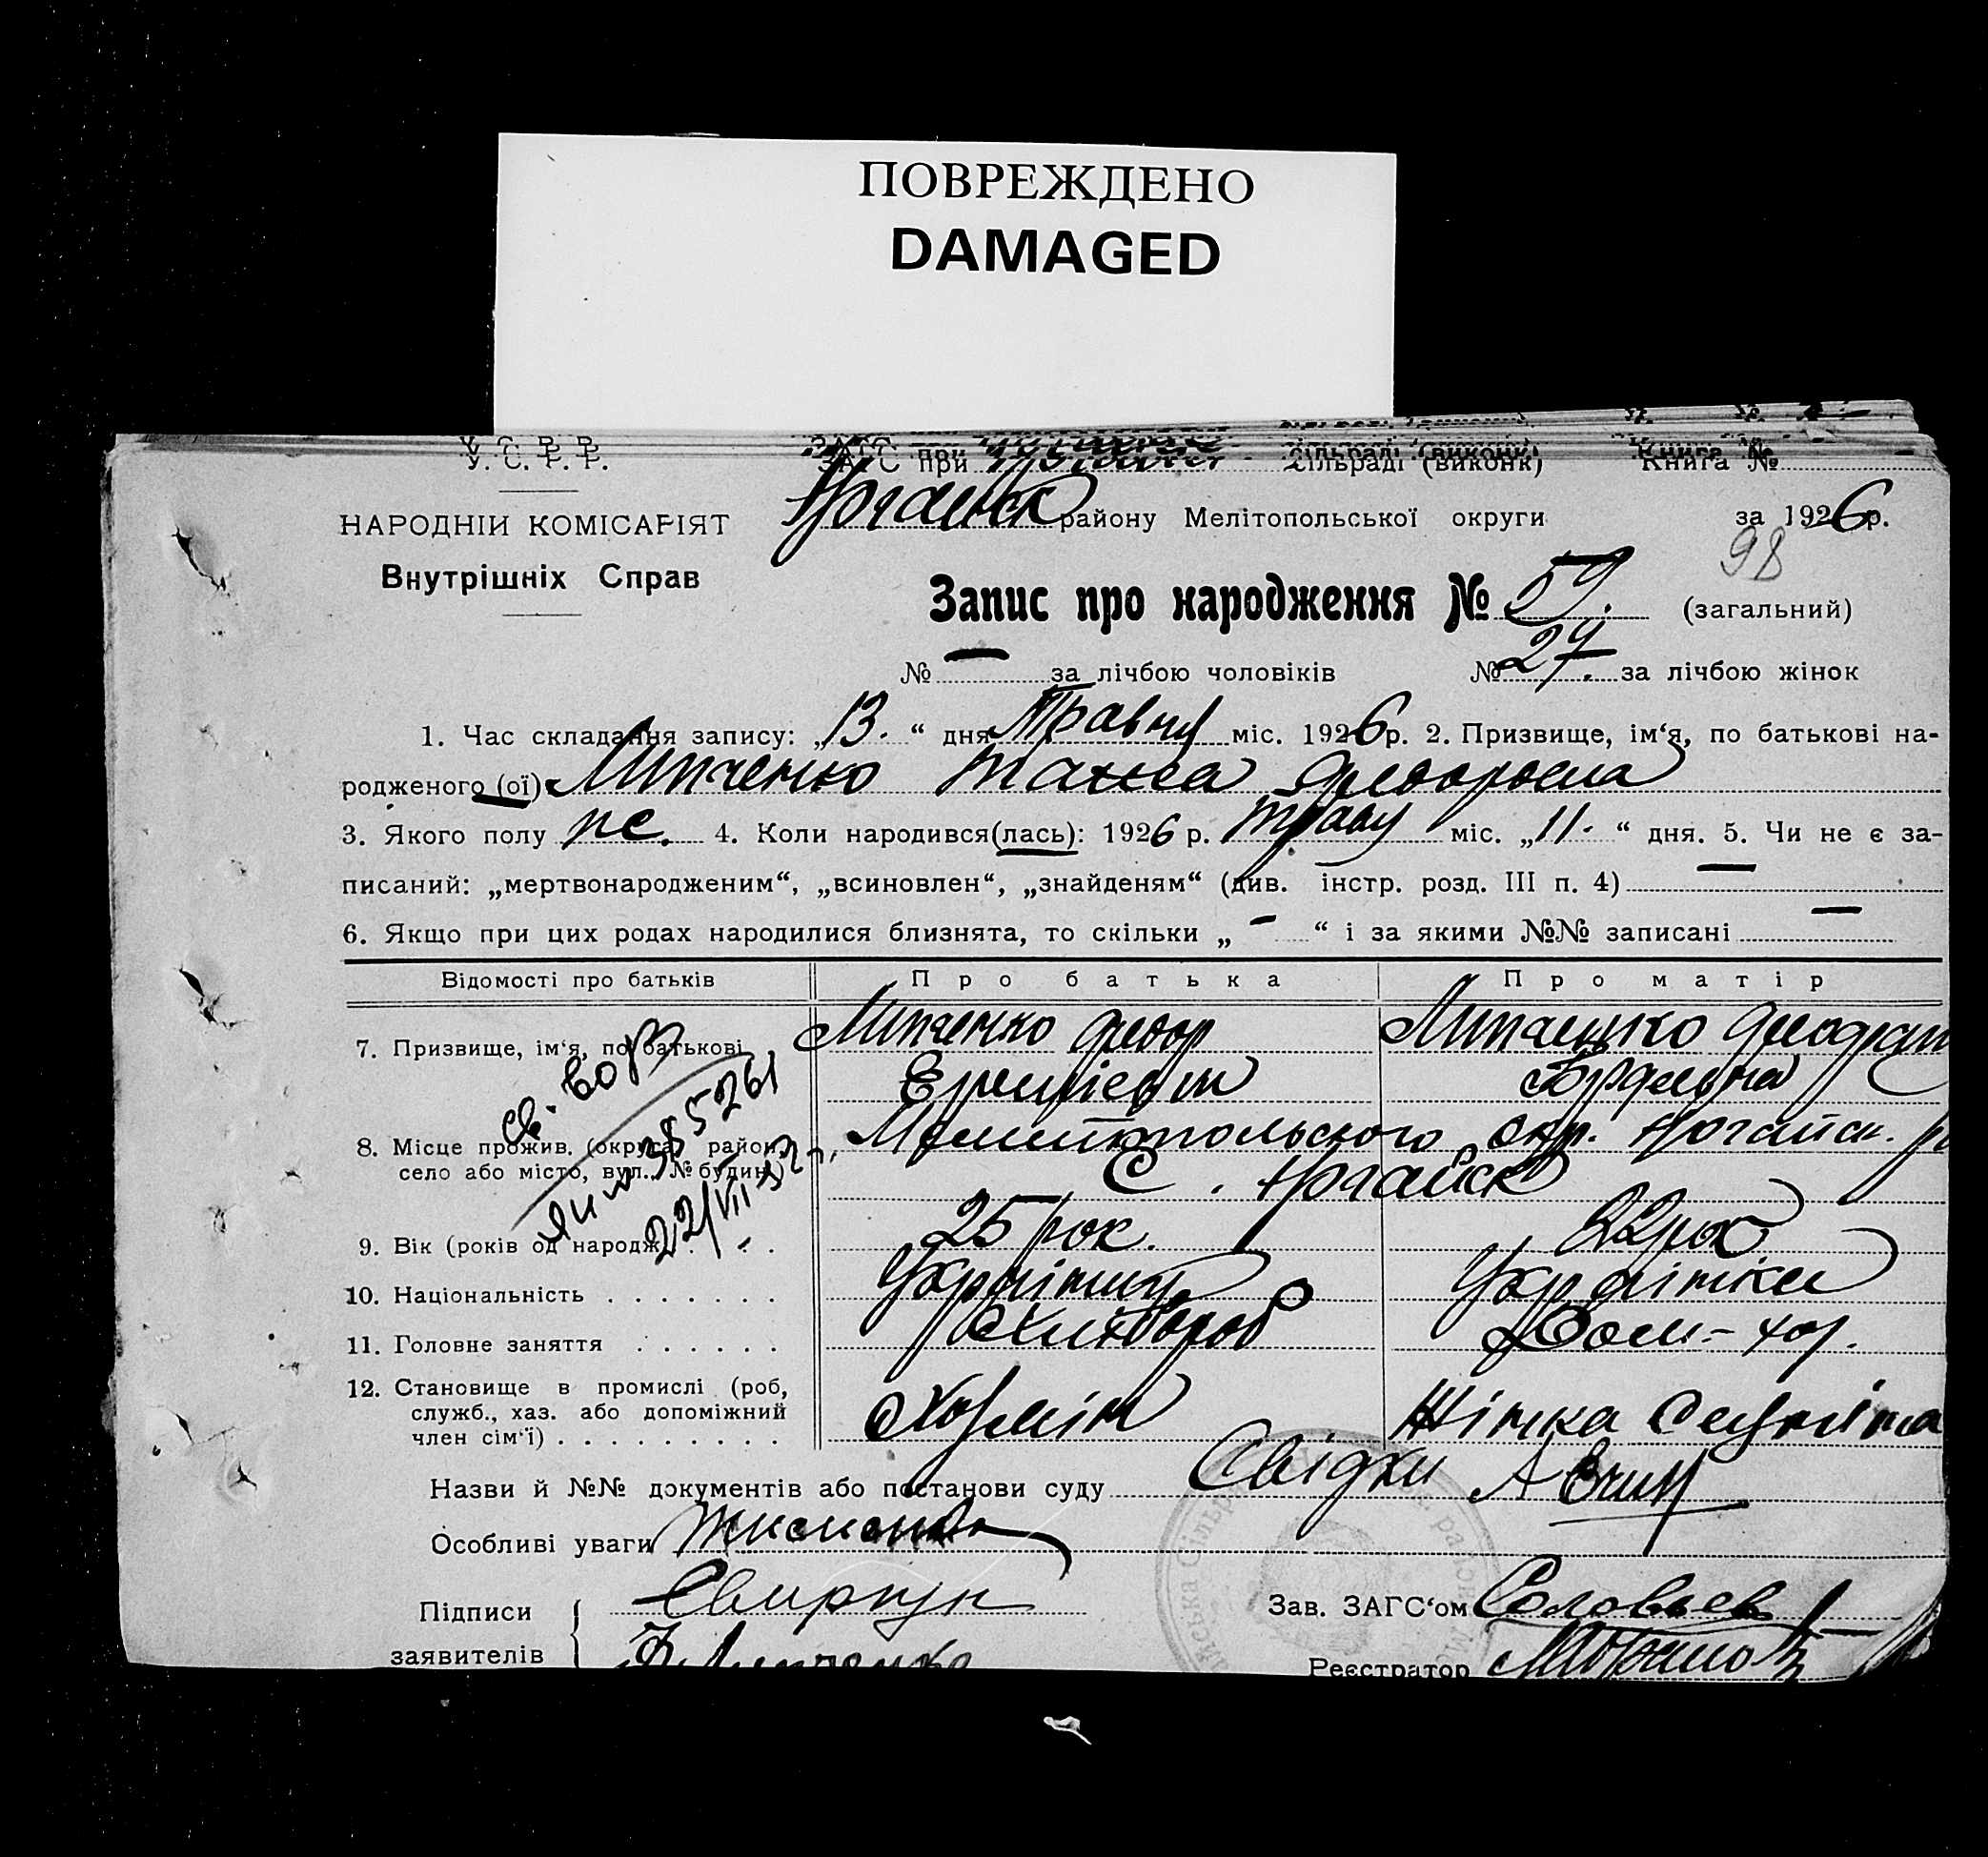 ПОВРЕЖДЕНО
DAMAGED
У. С. Р. Р.
ЗАГС при сільраді (виконк) Книга №
НАРОДНІЙ КОМІСАРІЯТ
Ногайск району Мелітопольської округи за 1926 р.
98
Внутрішніх Справ
Запис про народження № 59. (загальний)
№ — за лічбою чоловіків № 27. за лічбою жінок
1. Час складання запису: „13.“ дня Травня міс. 1926 р. 2. Призвище, ім‘я, по батькові на-
родженого (ої) Липченко Федоровна
3. Якого полу же. 4. Коли народився(лась): 1926 р. Траву міс. „11.“ дня. 5. Чи не є за-
писаний: „мертвонародженим“, „всиновлен“, „знайденям“ (див. інстр. розд. III п. 4) —
6. Якщо при цих родах народилися близнята, то скільки „ - “ і за якими №№ записані —
Відомості про батьків Про батька Про матір
7. Призвище, ім‘я, по батькові Липченко Федор Липченко
8. Місце прожив. (округа, район, Мелитопольского окр. Ногайск.
село або місто, вул., № будин.) С. Ногайск
22/VII-
9. Вік (років од народж.) 25 рок. 22 рок
10. Національність Українец Українка
11. Головне заняття Хлибороб Дом-хоз.
12. Становище в промислі (роб,
служб., хаз. або допоміжний
член сім‘ї) Хозяін Жінка
Назви й №№ документів або постанови суду Свідки
Особливі уваги
Підписи Свиргун Зав. ЗАГС‘ом Соловьев
заявителів Ф Липченко Реєстратор